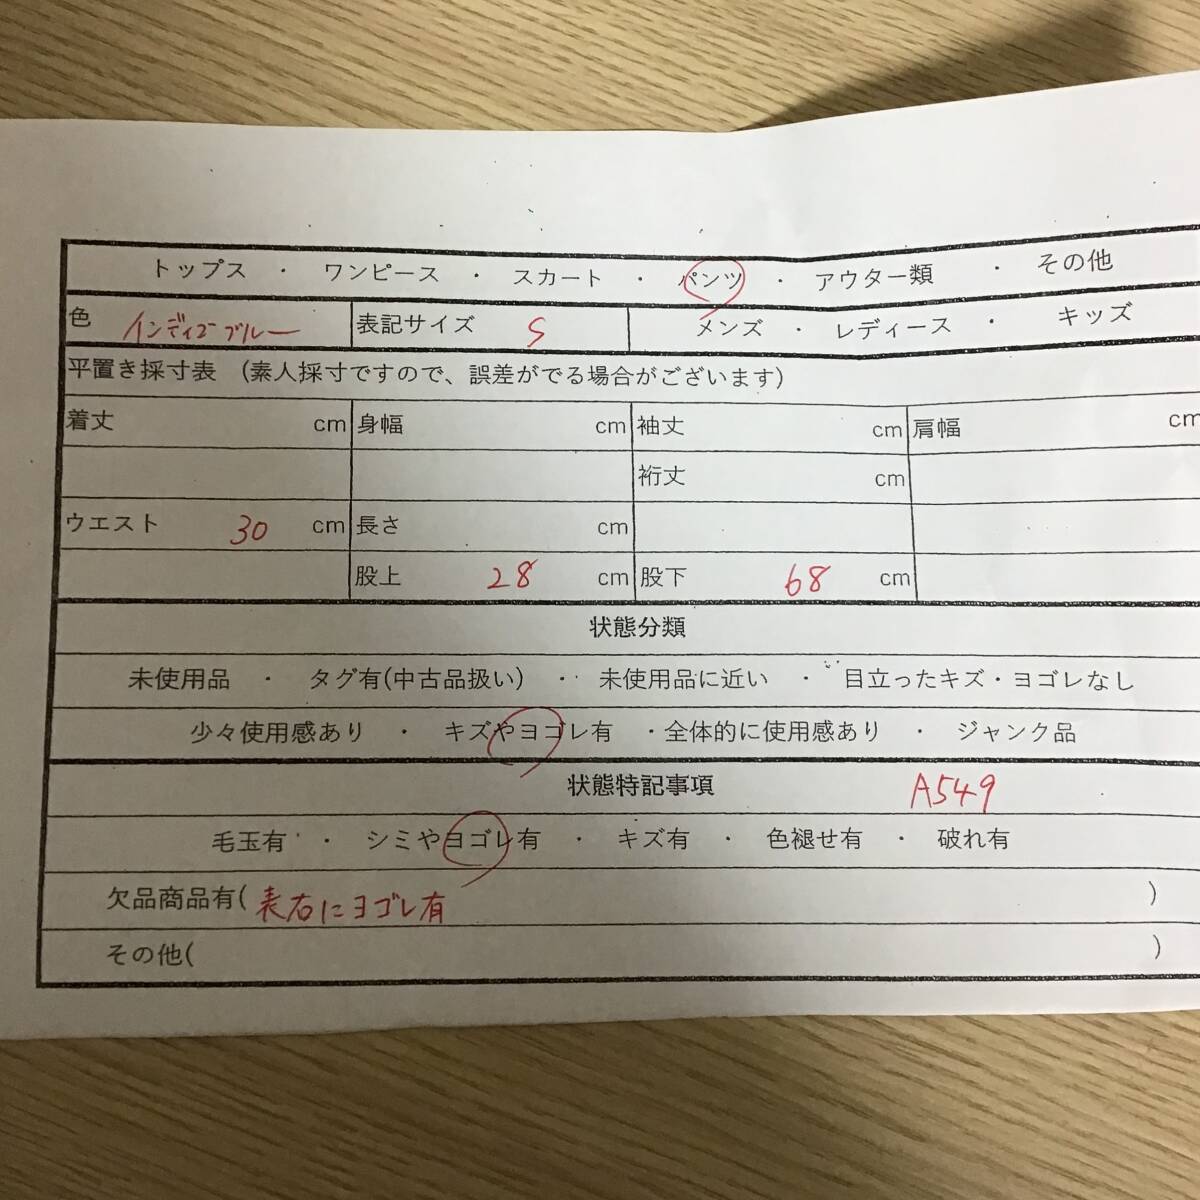 トップス ・ ワンピース ・ スカート ・ パンツ ・ アウター類 ・ その他
色 インディゴブルー 表記サイズ S メンズ ・ レディース ・ キッズ
平置き採寸表 (素人採寸ですので、誤差がでる場合がございます)
着丈 cm 身幅 cm 袖丈 cm 肩幅 cm
裄丈 cm
ウエスト 30 cm 長さ cm
股上 28 cm 股下 68 cm
状態分類
未使用品 ・ タグ有(中古品扱い) ・ 未使用品に近い ・ 目立ったキズ・ヨゴレなし
少々使用感あり ・ キズやヨゴレ有 ・全体的に使用感あり ・ ジャンク品
状態特記事項 A549
毛玉有 ・ シミやヨゴレ有 ・ キズ有 ・ 色褪せ有 ・ 破れ有
欠品商品有( 表右にヨゴレ有 )
その他( )